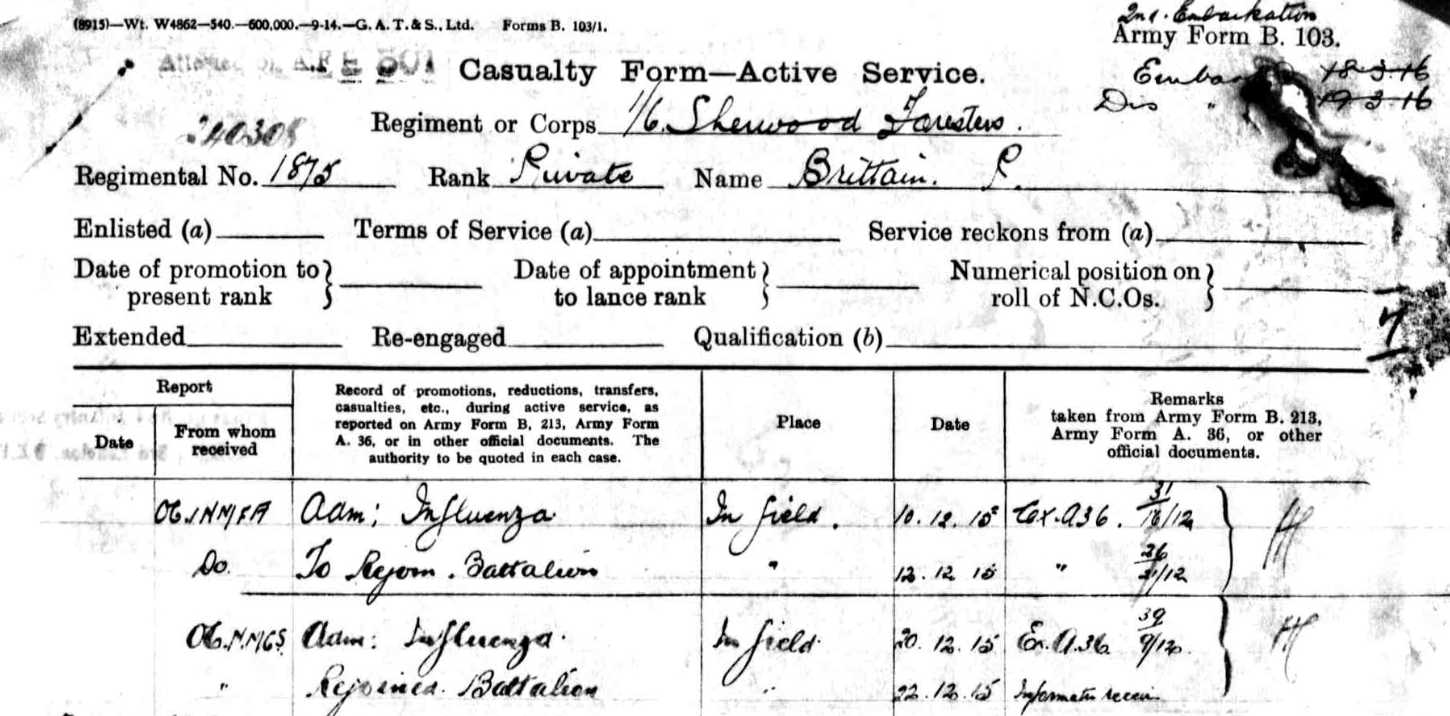 (8915)—Wt. W4862—540.—600,000.—9-14.—G. A. T. & S., Ltd. Forms B. 103/1.
Embarkation
Army Form B. 103.
A.F. E 501
Casualty Form—Active Service.
18-3-16
Dis " 19 3 16
Regiment or Corps 1/6. Sherwood Foresters.
240308
Regimental No. 1875 Rank Private Name Brittain. P.
Enlisted (a) Terms of Service (a) Service reckons from (a)
Date of promotion to } Date of appointment } Numerical position on }
present rank to lance rank roll of N.C.Os.
Extended Re-engaged Qualification (b)
Report
Date
From whom
received
Record of promotions, reductions, transfers,
casualties, etc., during active service, as
reported on Army Form B. 213, Army Form
A. 36, or in other official documents. The
authority to be quoted in each case.
Place
Date
Remarks
taken from Army Form B. 213,
Army Form A. 36, or other
official documents.
Adm; Influenza In field. 10.12.15 Ex. A36. 31
Do. To Rejoin. Battalion " 12.12.15 " 36
Adm: Influenza. In field 20.12.15 Ex. A.36 39
" Rejoined. Battalion " 22.12.15